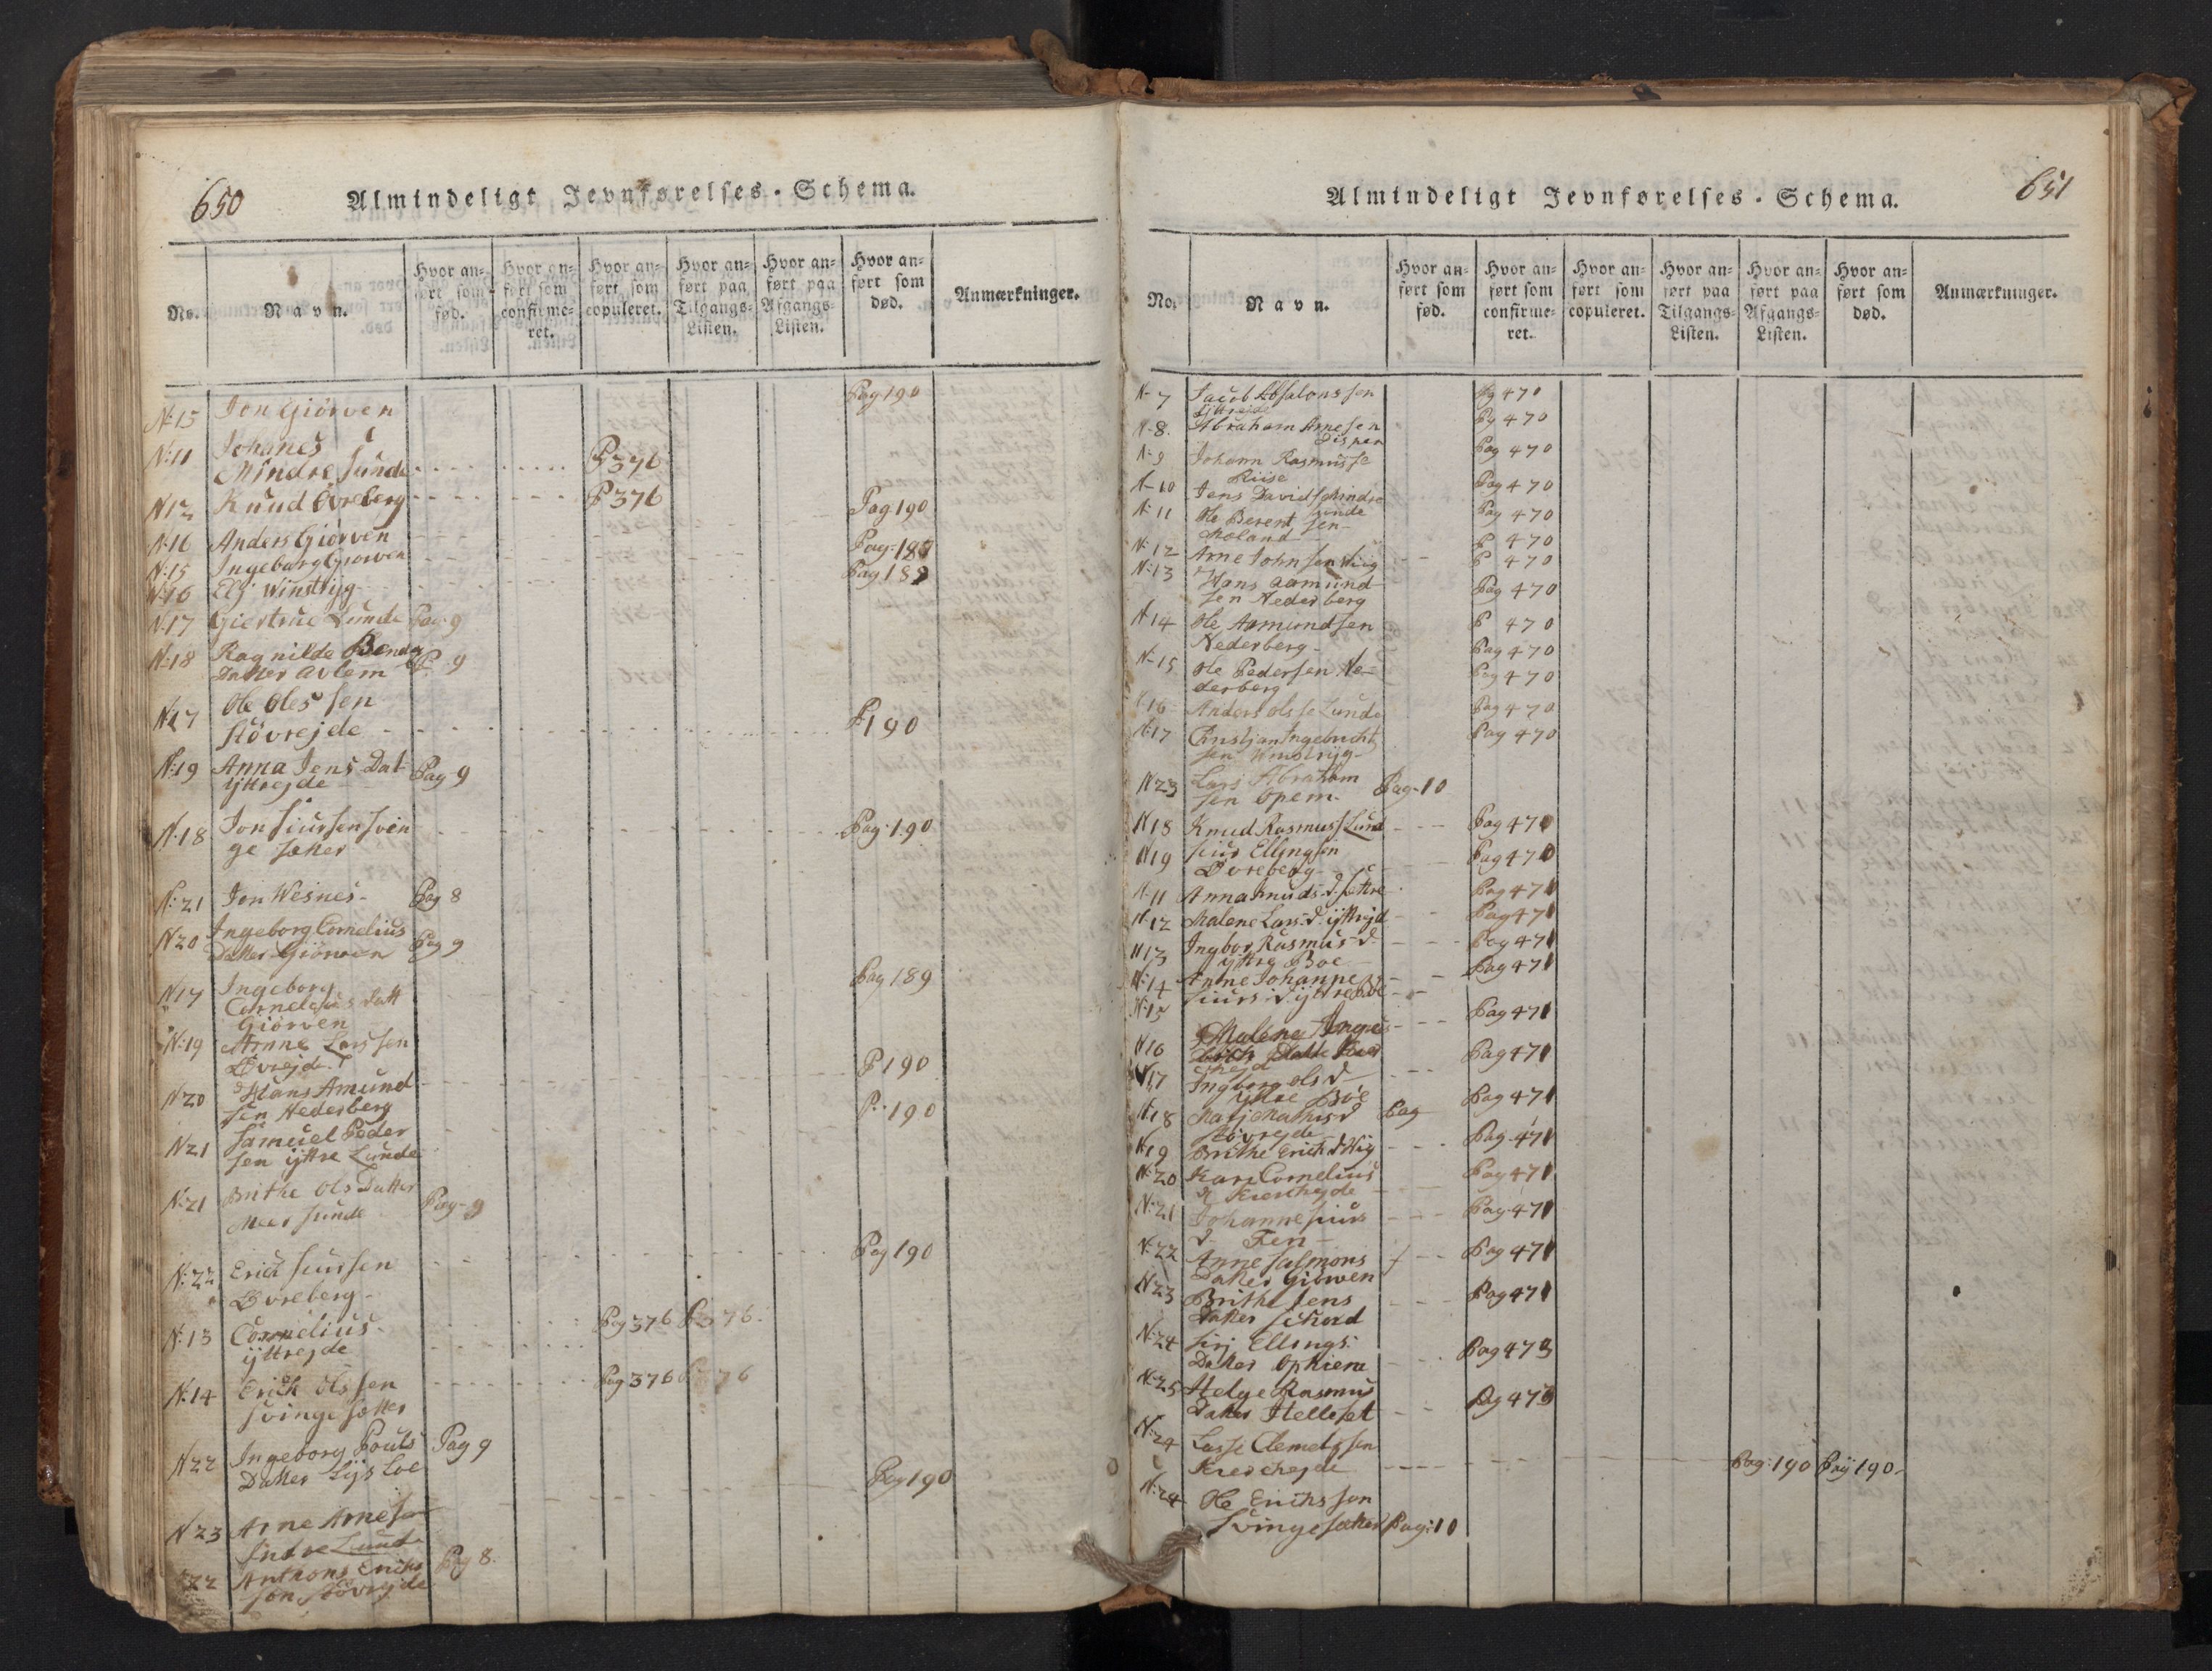 650
Almindeligt Jevnførelses-Schema.
No.
Navn.
Hvor anført som fød.
Hvor anført som confirmeret.
Hvor anført som copuleret.
Hvor anført paa Tilgangs-Listen.
Hvor anført paa Afgangs-Listen.
Hvor anført som død.
Anmærkninger.
N:15 Jon Giörven Pag 190
N:11 Johanes
Mindre Sunde P 376
N12 Knud Övreberg P 376
N:16 Anders Giörven Pag 190
N:15 Ingeborg Giörven Pag: 189
N:16 Elj Winstryg Pag 189
N:17 Giertrue Lunde Pag: 9
N:18 Ragnilde Bends
Datter Avlem P: 9
N17 Ole Oles sen
Støvrejde P 190
N:19 Anna Jens Dat
yttrejde Pag 9
N:18 Jon Siursen Svin
ge sætter Pag: 190
N:21 Jon Wesnes Pag 8
N20 Ingeborg Cornelius
Datter Giörven Pag 9
N17 Ingeborg
Cornelius datt
Giörven Pag 189
N:19 Anne Lars sen
Øvrejde P 190
N20 Hans Amund
sen Nederberg P: 190
N21 Samuel Peder
sen yttre Lunde
N:21 Brithe Ols Datter
Meer Sunde Pag- 9
N:22 Erich Siursen
Øvreberg Pag 190
N:13 Cornelius
yttrejde Pag 376
N:14 Erich Ols sen
Svinge sætter Pag 376
N22 Ingeborg Pouls
Datter Lys Loe Pag 9
N23 Arne Arnesen
Indre Lund Pag 190
22 Anthons Erichs
son Støvrejde Pag 8.
651
Almindeligt Jevnførelses-Schema.
No.
Navn.
Hvor anført som fød.
Hvor anført som confirmeret.
Hvor anført som copuleret.
Hvor anført paa Tilgangs-Listen.
Hvor anført paa Afgangs-Listen.
Hvor anført som død.
Anmærkninger.
N- 7 Jacob Absalons sen
yttrejde Pg 470
N-8. Abraham Arnesen
Disper Pg 470
N:9 Johann Rasmusse
Riise Pag 470
N-10 Jens Davids Mindre
Sunde Pag 470
N:11 Ole Berent sen
Moland Pag 470
N:12 Arne John sen Wiig P 470
N:13 Hans Aamund
sen Nederberg P 470
Pag 470
N14 Ole Aamundsen
Nederberg P 470
N-15 Ole Pedersen Ne-
derberg Pag 470
Pag 470
N16 Anders Ols se Lunde Pag 470
N:17 Christjan Ingebricht
sen Winstryg Pag 470
N23 Lars Abraham
sen Opem Pag-10
N18 Knud Rasmuss Lund Pag 470
N19 Siur Ellingsen
Øvreberg Pag 470
N:11 Anna Knuds D. Pag 471
N:12 Malene Lars: D. yttrejd Pag 471
N13 Ingbor Rasmus-D.
yttre Boe Pag 471
N:14 Anne Johanne
Siurs-D yttre Boe Pag 471
N:15
Malena Pag 471
N16 Pag 471
N17 Ingborg Ols D
yttre Böe Pag 471
N:18 D Pag
Støvrejde
N19 Brithe Erich D Wig Pag 471
N:20 Kari Cornelius
D Kierchejde Pag 471
N:21 Johanne Siurs
D. Fen Pag 471
N:22 Anne Salmons
Datter Giörven Pag 471
N23 Brithe Jens
Datter Pag 471
N:24 Sirj Ellings:
Datter Opkiem Pag 473
N:25 Helge Rasmus
Datter Helleset Pag 473
N:24 Lasse Clemetssen
Kierchejde Pag: 190 Pag 190
N:24 Ole Erichs sen
Svinge sætter Pag: 10